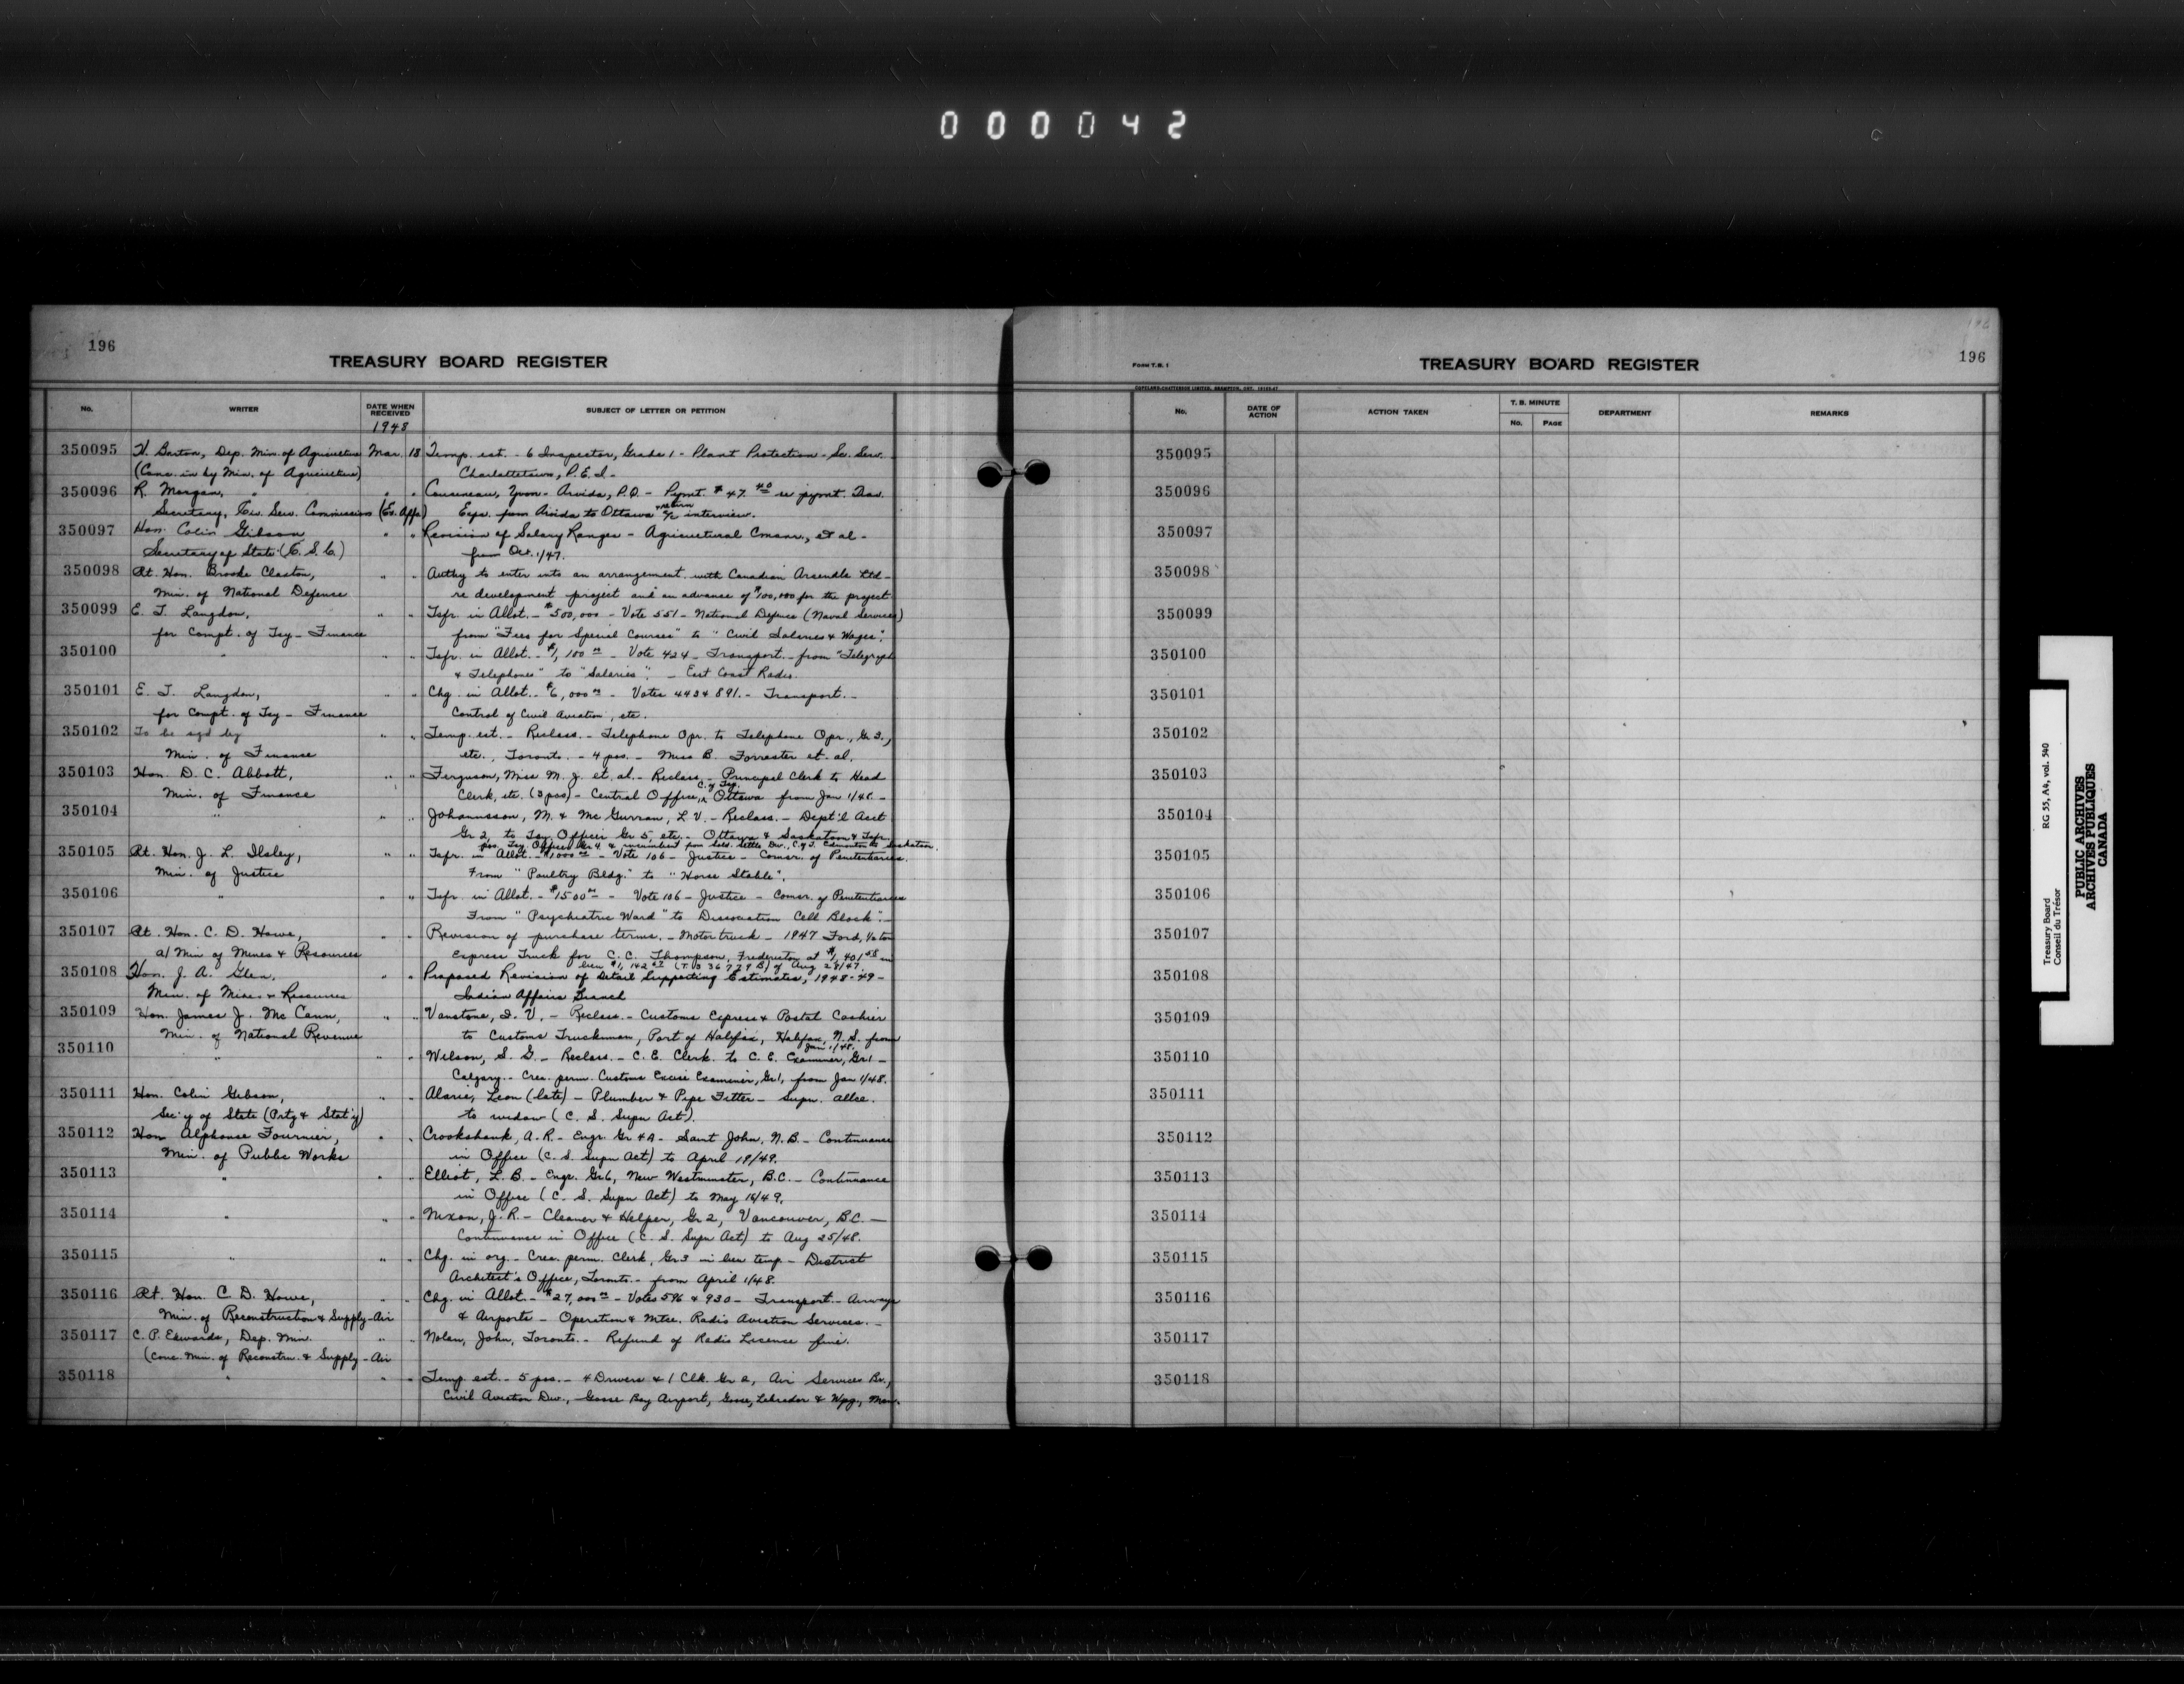 000042
196
TREASURY BOARD REGISTER
No. WRITER DATE WHEN RECEIVED SUBJECT OF LETTER OR PETITION
1948
350095 H. Barton, Dep. Min. of Agriculture Mar. 18 Temp. est. - 6 Inspector, Grade 1 - Plant Protection - Sc. Serv.
(Conc. in by Min. of Agriculture) Charlottetown, P.E.I. -
350096 R. Morgan, " " Cousineau, Yvon - Arvida, P.Q. - Pymt. $47.40 re pymt. Trav.
Secretary, Civ. Serv. Commission (Ex. Affs) Exps. from Arvida to Ottawa & return interview.
350097 Hon. Colin Gibson " " Revision of Salary Ranges - Agricultural et al -
Secretary of State (C.S.C.) from Oct. 1/47.
350098 Rt. Hon. Brooke Claxton, " " Authy to enter into an arrangement with Canadian Arsenals Ltd -
Min. of National Defence re development project and an advance of $100,000 for the project
350099 E. T. Langdon, " " Tsfr. in Allot. - $500,000 - Vote 551 - National Defence (Naval Services)
for Compt. of Tsy - Finance from "Fees for Special Courses" to "Civil Salaries & Wages".
350100 " " " Tsfr. in Allot. - $1,100 00 - Vote 424 - Transport - from "Telegraph
& Telephones" to "Salaries". - East Coast Radio.
350101 E. T. Langdon, " " Chg. in Allot. - $6,000 00 - Votes 443 & 891. - Transport. -
for Compt. of Tsy - Finance Control of Civil Aviation, etc.
350102 To be sgd by " " Temp. est. - Reclass. - Telephone Opr. to Telephone Opr., Gr 3.,
Min. of Finance etc., Toronto. - 4 pos. - Miss B. Forrester et. al.
350103 Hon. D. C. Abbott, " " Ferguson, Miss M. J. et. al. - Reclass. - Principal Clerk to Head
Min. of Finance Clerk, etc. (3 pos) - Central Office, C. of Tsy. Ottawa from Jan 1/48. -
350104 " " " Johannsson, M. & McGurran, L. V. - Reclass. - Dept'l Acct
Gr 2, to Tsy. Officer Gr 5, etc. - Ottawa & Saskatoon & Tsfr.
pos. Tsy. Officer Gr 4 & incumbent from Sold. Settle Div., C. of T. Edmonton to Saskatoon.
350105 Rt. Hon. J. L. Ilsley, " " Tsfr. in Allot. - $1,000 00 - Vote 106 - Justice - Comsr. of Penitentiaries.
Min. of Justice From "Poultry Bldg." to "Horse Stable".
350106 " " " Tsfr. in Allot. - $1500 00 - Vote 106 - Justice - Comsr. of Penitentiaries
From "Psychiatric Ward" to Dissociation Cell Block". -
350107 Rt. Hon. C. D. Howe, " " Revision of purchase terms. - Motor truck - 1947 Ford, 1/2 ton
a/ Min of Mines & Resources Express Truck for C. C. Thompson, Fredericton at $1,401 58 in
lieu $1,142 (T. B 336729 B) of Aug 28/47.
350108 Hon. J. A. Glen, " Proposed Revision of Detail Supporting Estimates, 1948-49 -
Min. of Mines & Resources Indian Affairs Branch
350109 Hon. James J. McCann, " " Vanstone, I. V. - Reclass. - Customs Express & Postal Cashier
Min. of National Revenue to Customs Truckman, Port of Halifax, Halifax, N.S. from
Jan 1/48.
350110 " " " Wilson, S. G. - Reclass. - C. E. Clerk to C. E. Examiner, Gr 1 -
Calgary. - Crea. perm. Customs Excise Examiner, Gr 1, from Jan 1/48.
350111 Hon. Colin Gibson, " " Alarie, Leon (late) - Plumber & Pipe Fitter - Supn. allce.
Sec'y of State (Prtg & Stat'y) to widow (C. S. Supn Act).
350112 Hon Alphonse Fournier, " " Crookshank, A. R. - Engr. Gr 4A - Saint John, N.B. - Continuance
Min. of Public Works in Office (C. S. Supn Act) to April 19/49.
350113 " " " Elliot, L. B. - Engr. Gr 6, New Westminster, B.C. - Continuance
in Office (C. S. Supn Act) to May 16/49.
350114 " " " Nixon, J. R. - Cleaner & Helper, Gr 2, Vancouver, B.C. -
Continuance in Office (C. S. Supn Act) to Aug 25/48.
350115 " " " Chg. in org. - Crea. perm. Clerk, Gr 3 in lieu temp. - District
Architect's Office, Toronto. - from April 1/48.
350116 Rt. Hon. C. D. Howe, " " Chg. in Allot. - $27,000 00 - Votes 596 & 930 - Transport. - Airways
Min. of Reconstruction & Supply - Air & Airports - Operation & Mtce. Radio Aviation Services. -
350117 C. P. Edwards, Dep. Min. " " Nolan, John, Toronto. - Refund of Radio License fine.
(Conc. Min. of Reconstrn. & Supply - Air
350118 " " " Temp. est. - 5 pos. - 4 Drivers & 1 Clk. Gr 2, Air Services Br.,
Civil Aviation Div., Goose Bay Airport, Goose, Labrador & Wpg., Man.
FORM T.B. 1
TREASURY BOARD REGISTER
196
No. DATE OF ACTION ACTION TAKEN T. B. MINUTE No. PAGE DEPARTMENT REMARKS
350095
350096
350097
350098
350099
350100
350101
350102
350103
350104
350105
350106
350107
350108
350109
350110
350111
350112
350113
350114
350115
350116
350117
350118
Treasury Board RG 55, A4, vol. 540
Conseil du Trésor
PUBLIC ARCHIVES
ARCHIVES PUBLIQUES
CANADA